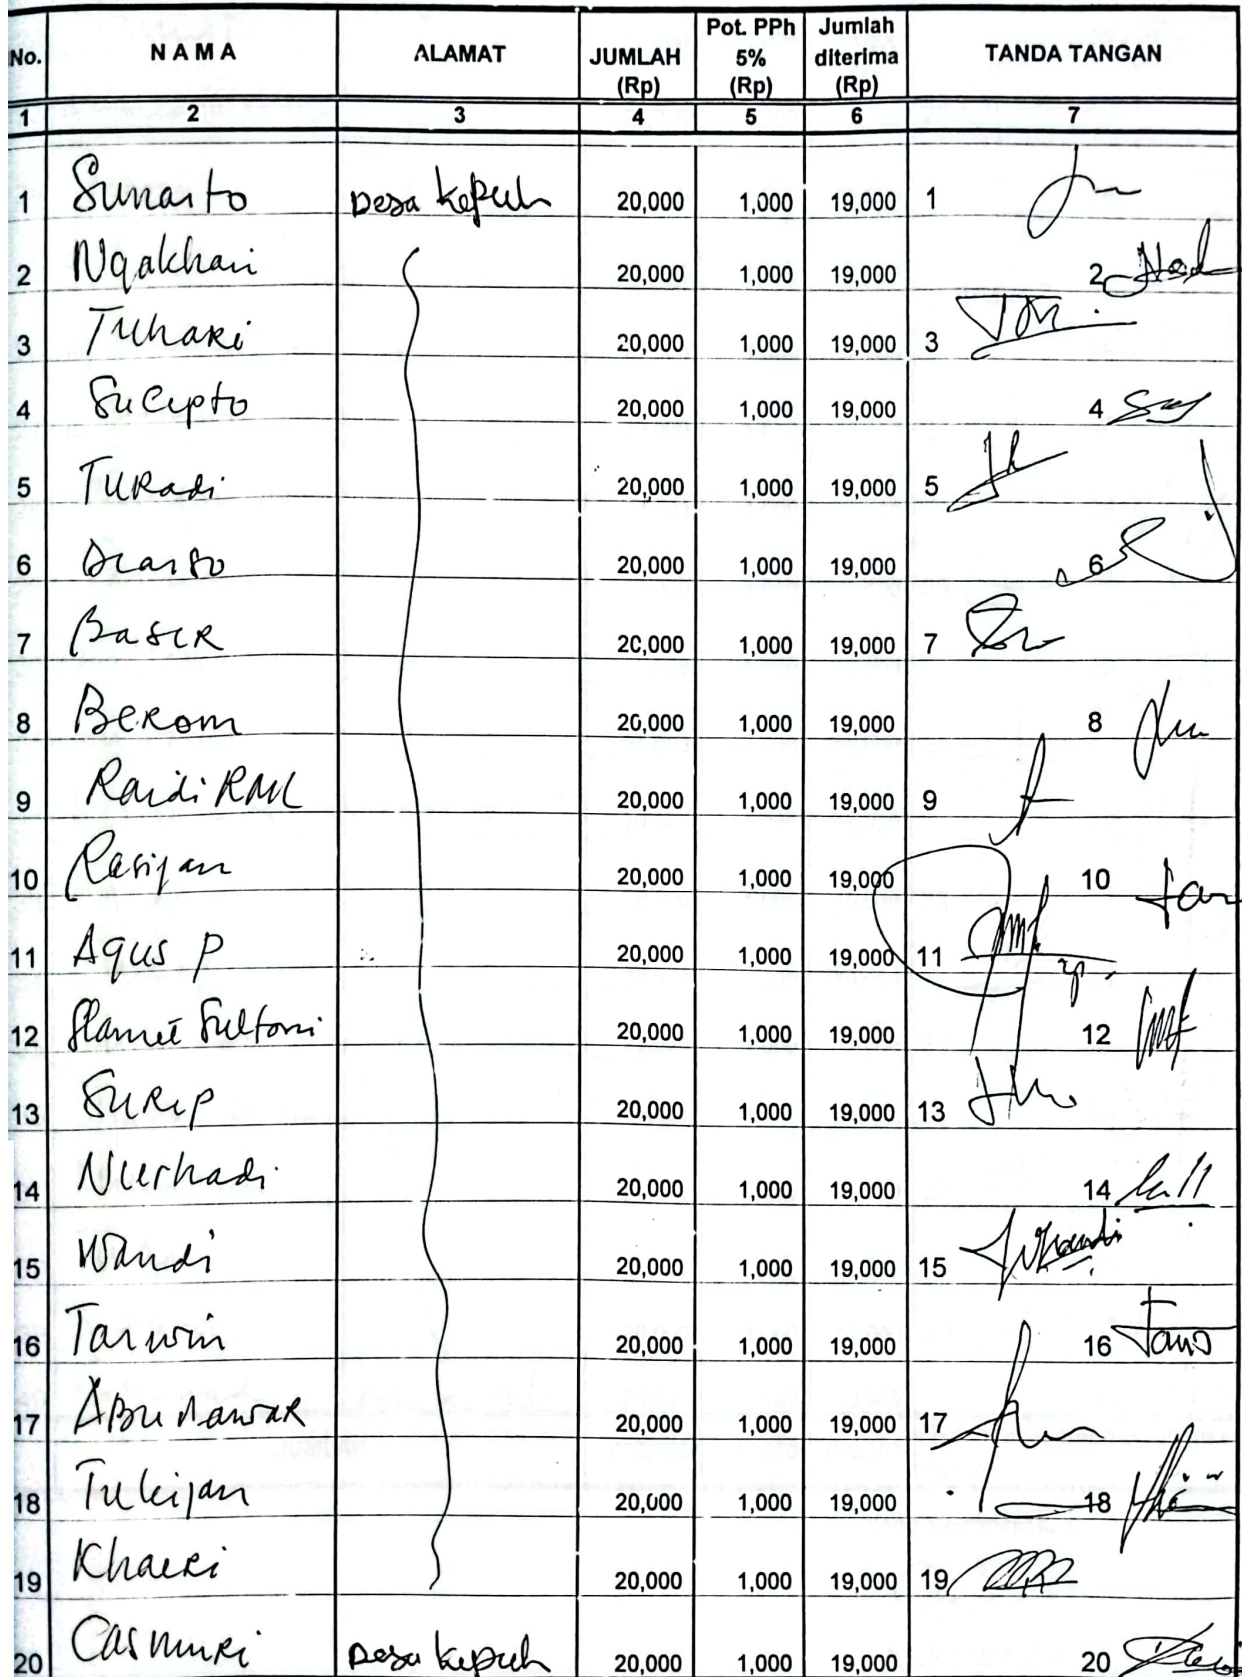 No. NAMA ALAMAT JUMLAH (Rp) Pot. PPh 5% (Rp) Jumlah diterima (Rp) TANDA TANGAN
1 2 3 4 5 6 7
1 Sunarto Desa Kepuh 20,000 1,000 19,000 1
2 Ngakhari 20,000 1,000 19,000 2
3 Tuhari 20,000 1,000 19,000 3
4 Sucipto 20,000 1,000 19,000 4
5 Turadi 20,000 1,000 19,000 5
6 20,000 1,000 19,000 6
7 Basir 20,000 1,000 19,000 7
8 Berom 20,000 1,000 19,000 8
9 Raidi 20,000 1,000 19,000 9
10 Rasijan 20,000 1,000 19,000 10
11 Agus P 20,000 1,000 19,000 11
12 Slamet Sultoni 20,000 1,000 19,000 12
13 Surip 20,000 1,000 19,000 13
14 Nurhadi 20,000 1,000 19,000 14
15 Wandi 20,000 1,000 19,000 15
16 Tarwin 20,000 1,000 19,000 16
17 Abu 20,000 1,000 19,000 17
18 Tukijan 20,000 1,000 19,000 18
19 Khaeri 20,000 1,000 19,000 19
20 Casmuri Desa Kepuh 20,000 1,000 19,000 20